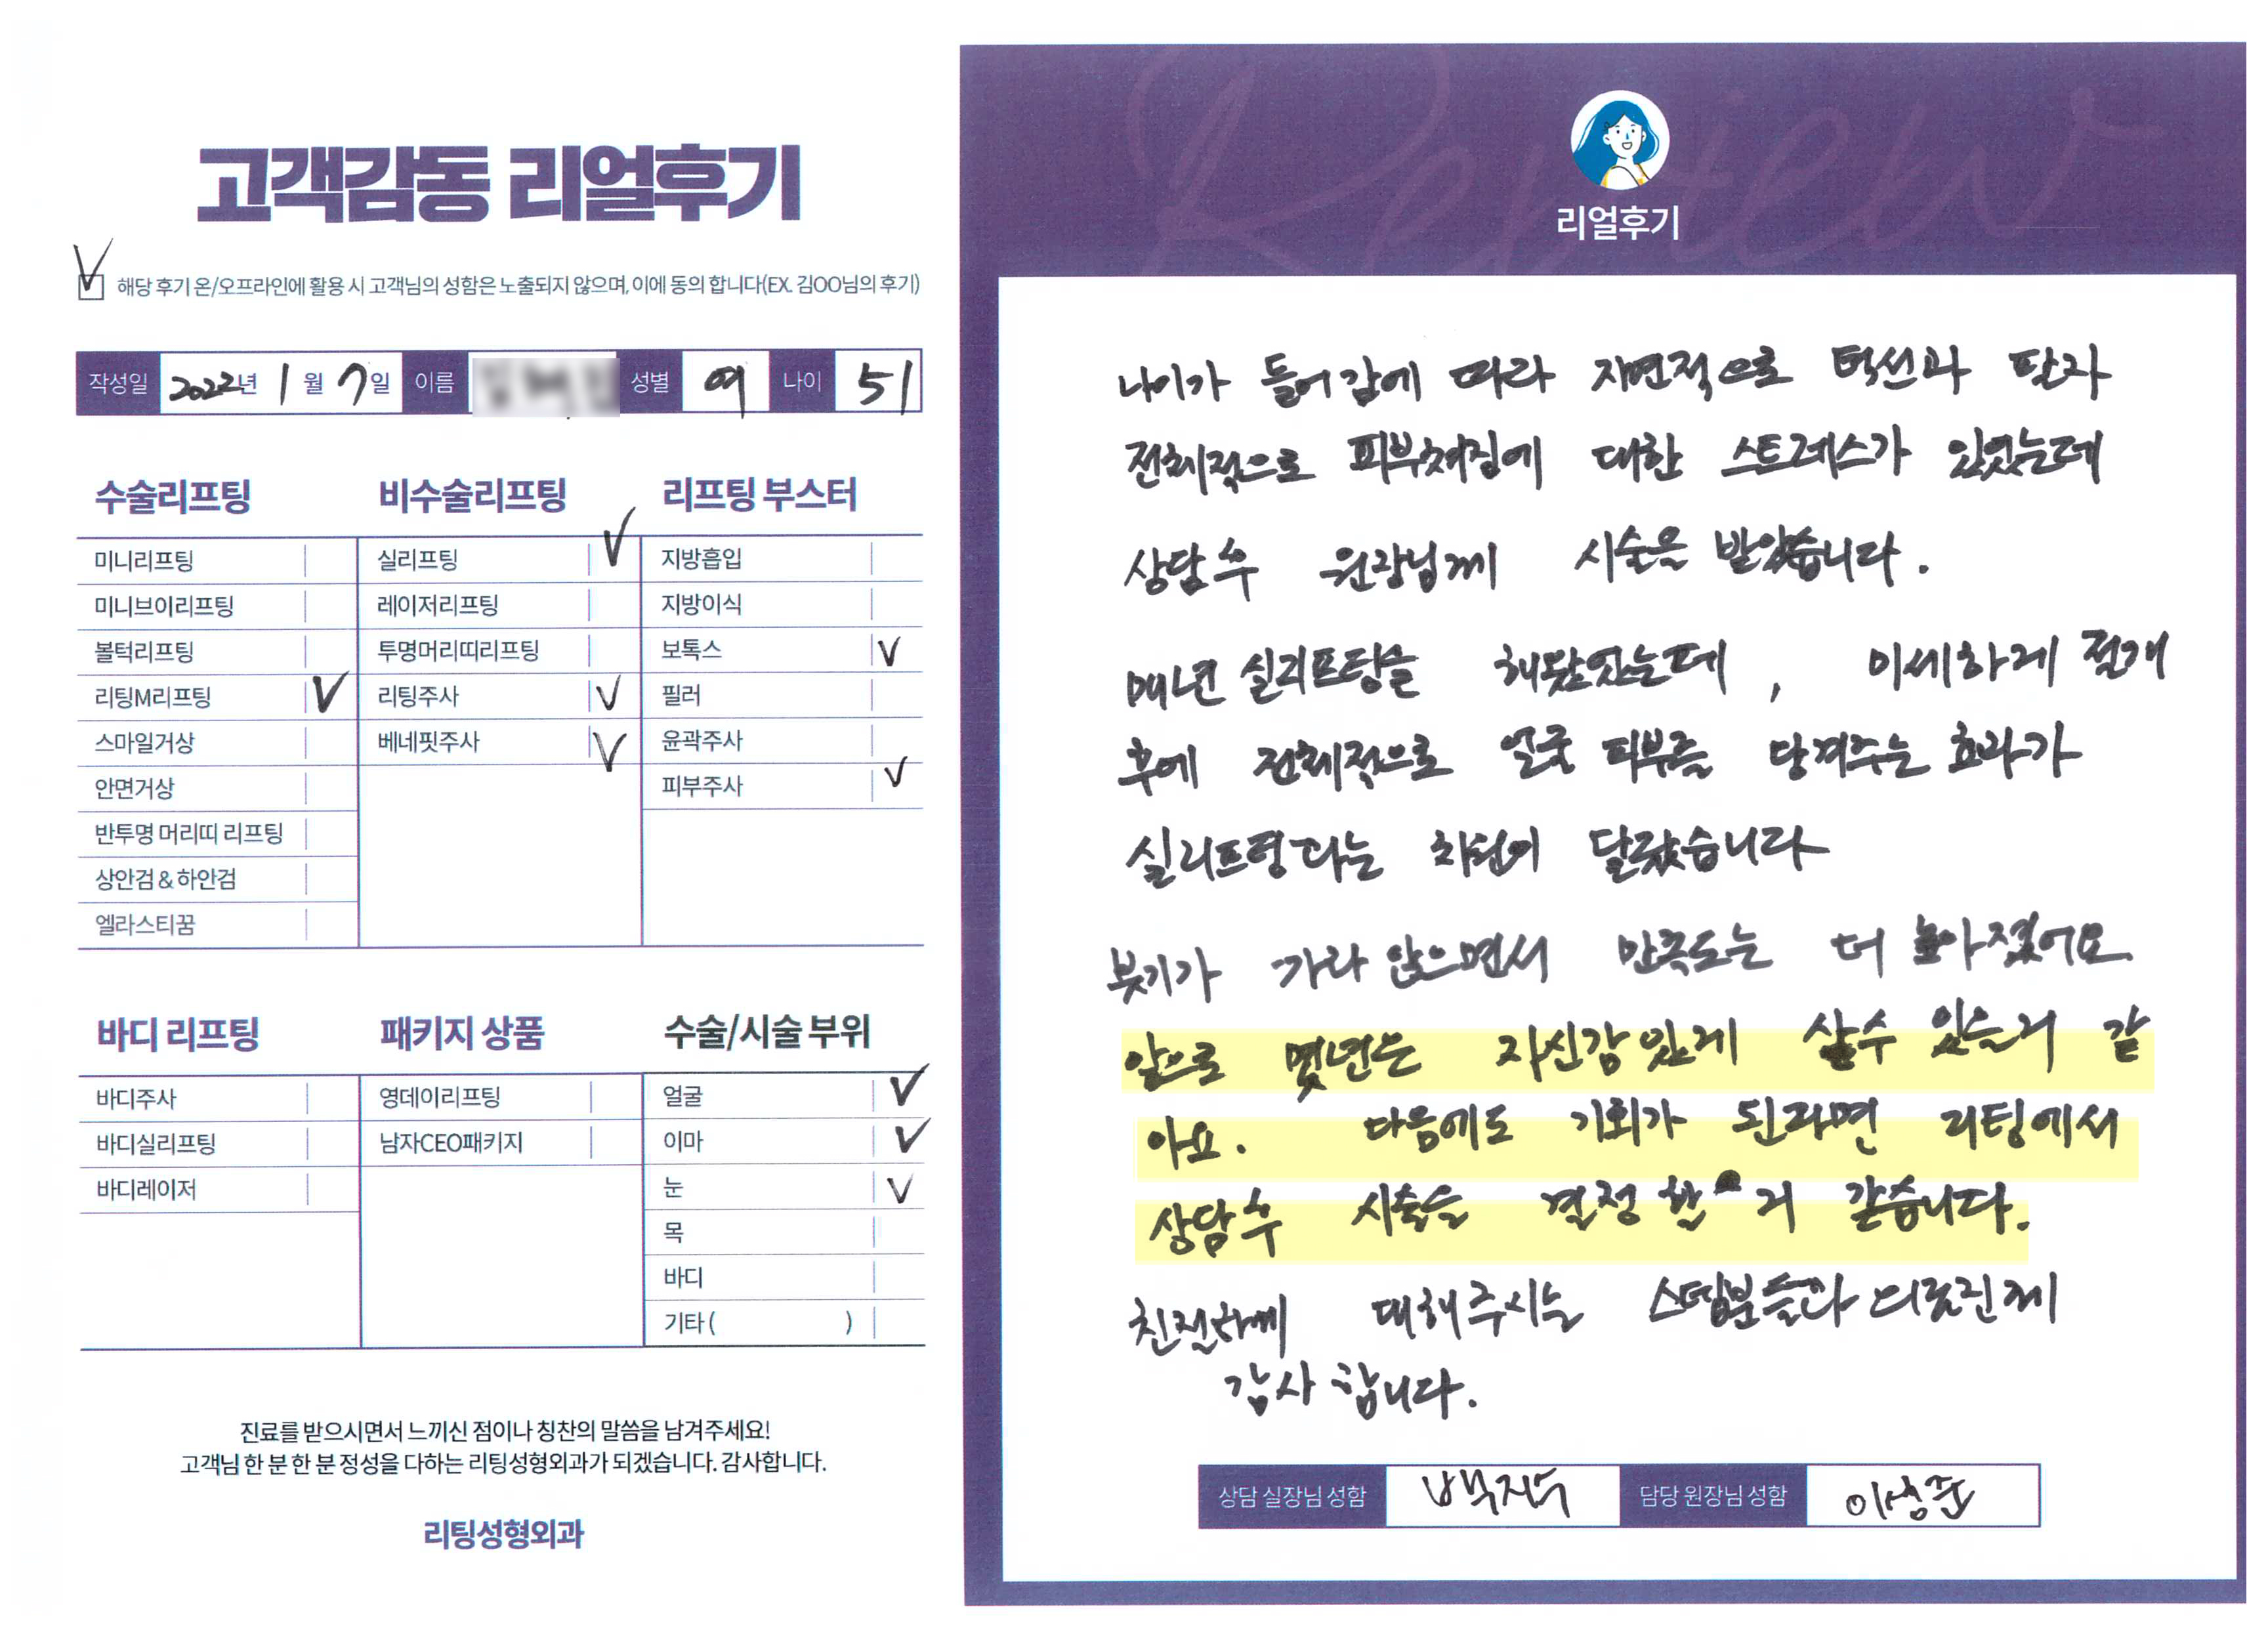 고객감동 리얼후기
해당 후기 온/오프라인에 활용 시 고객님의 성함은 노출되지 않으며, 이에 동의 합니다(EX. 김OO님의 후기)
작성일 2022년 1월 7일 이름 성별 여 나이 51
수술리프팅 비수술리프팅 리프팅 부스터
미니리프팅 실리프팅 지방흡입
미니브이리프팅 레이저리프팅 지방이식
볼턱리프팅 투명머리띠리프팅 보톡스
리팅M리프팅 리팅주사 필러
스마일거상 베네핏주사 윤곽주사
안면거상 피부주사
반투명 머리띠 리프팅
상안검 & 하안검
엘라스티꿈
바디 리프팅 패키지 상품 수술/시술 부위
바디주사 영데이리프팅 얼굴
바디실리프팅 남자CEO패키지 이마
바디레이저 눈
목
바디
기타 ( )
진료를 받으시면서 느끼신 점이나 칭찬의 말씀을 남겨주세요!
고객님 한 분 한 분 정성을 다하는 리팅성형외과가 되겠습니다. 감사합니다.
리팅성형외과
Review
리얼후기
나이가 들어감에 따라 자연적으로 턱선과 팔자
전체적으로 피부쳐짐에 대한 스트레스가 있었는데
상담후 원장님께 시술을 받았습니다.
매년 실리프팅을 해왔었는데, 미세하게 절개
후에 전체적으로 얼굴 피부를 당겨주는 효과가
실리프팅과는 차원이 달랐습니다
붓기가 가라 앉으면서 만족도는 더 높아졌어요.
앞으로 몇년은 자신감있게 살수 있을거 같
아요. 다음에도 기회가 된다면 리팅에서
상담후 시술을 결정할 거 같습니다.
친절하게 대해주시는 스텝분들과 의료진께
감사 합니다.
상담 실장님 성함 담당 원장님 성함 이상준